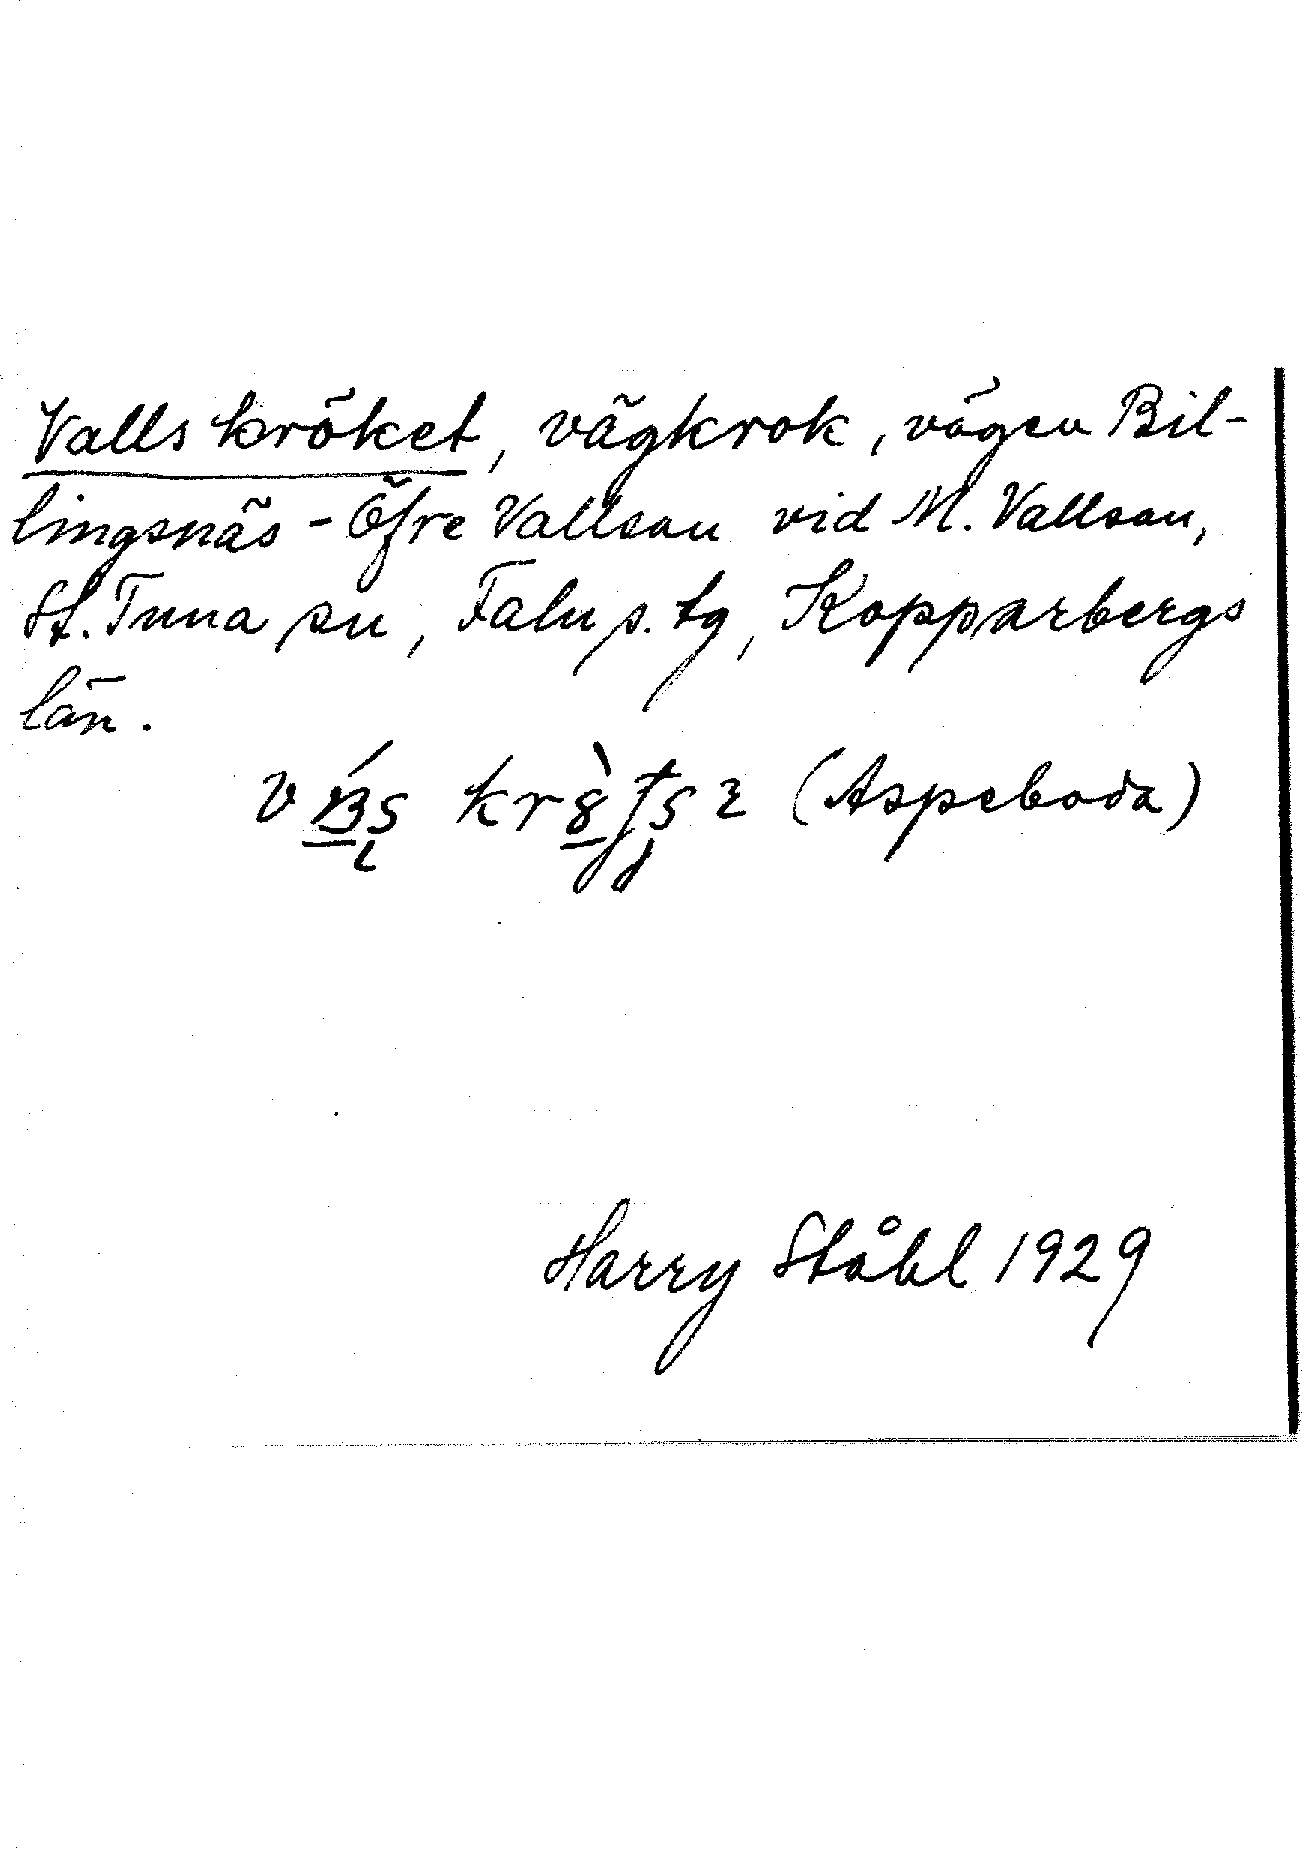 Vallskröket, vägkrok, vägen Bil-
lingsnäs - Öfre Vallsan vid M. Vallsan,
St. Tuna sn, Falu s. tg, Kopparbergs
län.
(Aspeboda)
Harry Ståhl 1929